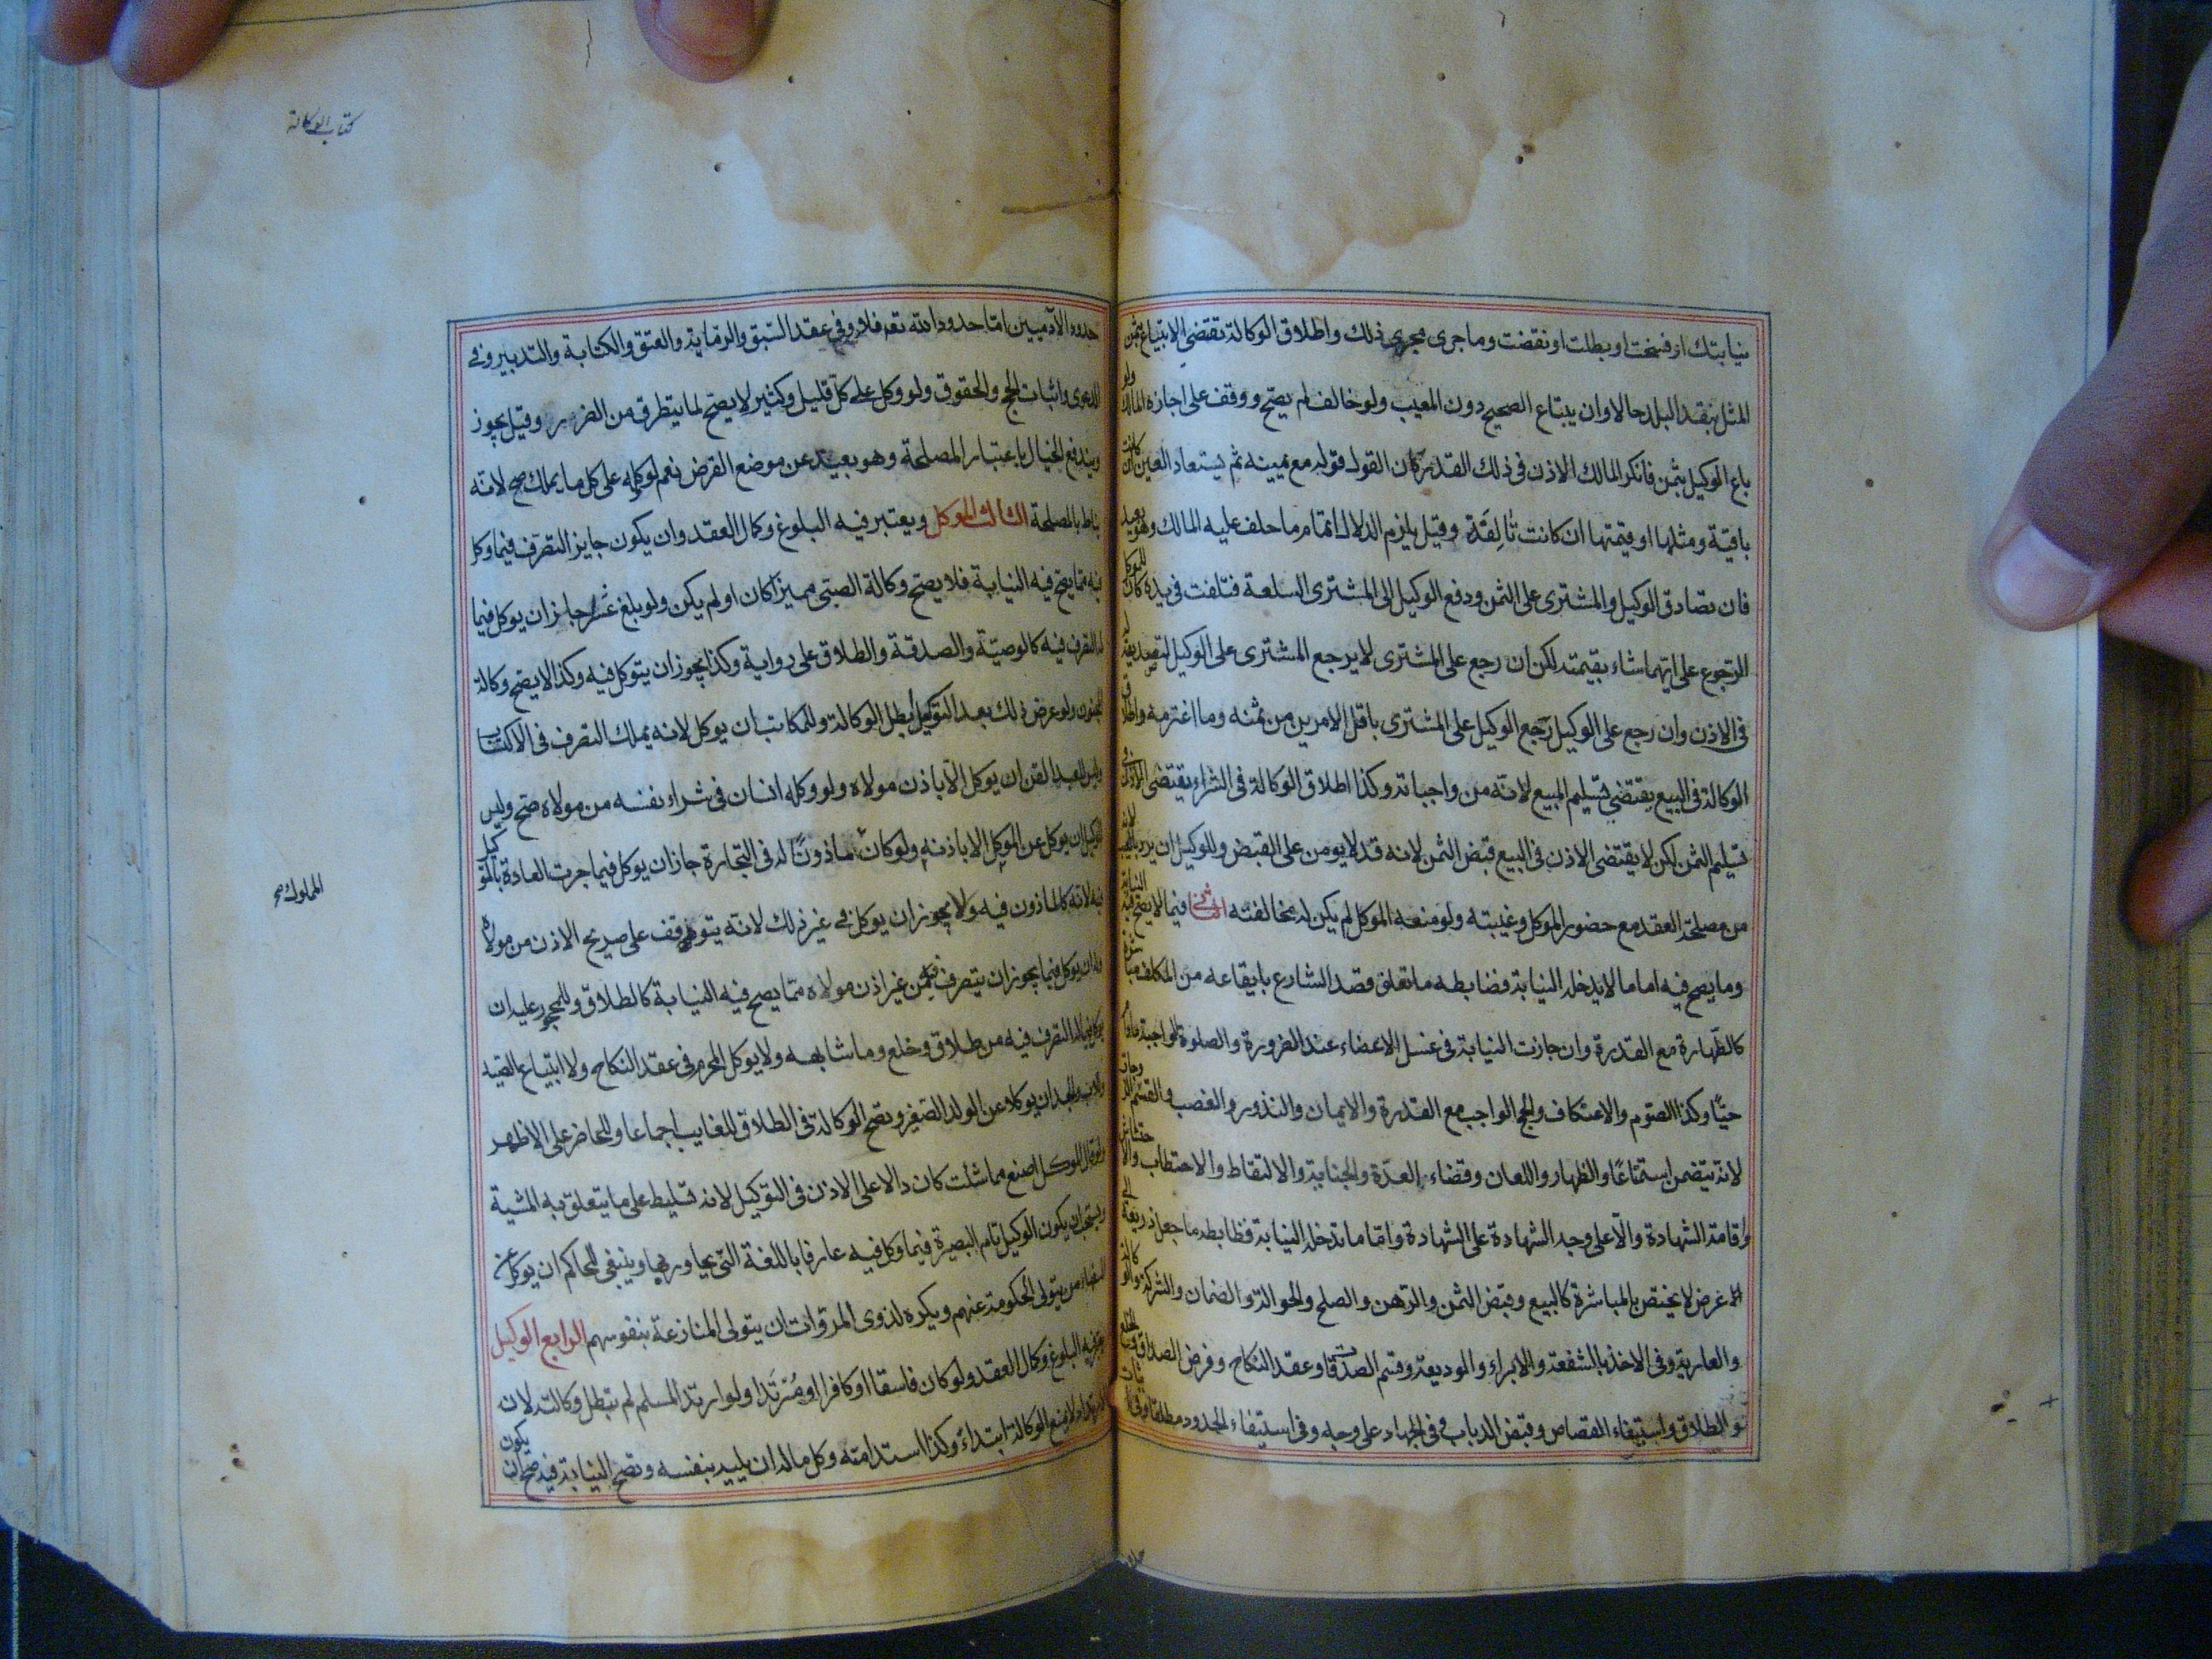 بنيابتك او فسخت او بطلت او نقضت وما جرى مجرى ذلك واطلاق الوكالة تقتضى الابتياع بثمن
المثل بنقد البلد حالا وان يبتاع الصحيح دون المعيب ولو خالف لم يصح ووقف على اجازة المالك ولو
باع الوكيل بثمن فانكر المالك الاذن فى ذلك القدر كان القول قوله مع يمينه ثم يستعاد العين ان كانت
باقية ومثلها او قيمتها ان كانت تالفة وقيل يلزم الدلال اتمام ما حلف عليه المالك وهو بعيد
فان تصادق الوكيل والمشترى على الثمن ودفع الوكيل الى المشترى السلعة فتلفت فى يده كان للموكل
الرجوع على ايهما شاء بقيمته لكن ان رجع على المشترى لا يرجع المشترى على الوكيل لتصديقه له
فى الاذن وان رجع على الوكيل رجع الوكيل على المشترى باقل الامرين من ثمنه وما اغترمه واطلاق
الوكالة فى البيع يقتضى تسليم المبيع لانه من واجباته وكذا اطلاق الوكالة فى الشراء يقتضى الاذن فى
تسليم الثمن لكن لا يقتضى الاذن فى البيع قبض الثمن لانه قد لا يومن على القبض وللوكيل ان يرد بالعيب لانه
من مصلحة العقد مع حضور الموكل وغيبته ولو منعه الموكل لم يكن له مخالفته الثانى فيما لا يصح فيه النيابة
وما يصح فيه اما ما لا يدخله النيابة فضابطه ما تعلق قصد الشارع بايقاعه من المكلف مباشرة
كالطهارة مع القدرة وان جازت النيابة فى غسل الاعضاء عند الضرورة والصلوة الواجبة ما دام
حيا وكذا الصوم والاعتكاف والحج الواجب مع القدرة والايمان والنذور والغصب والقسم
لانه يتضمن استمتاعا والظهار واللعان وقضاء العدة والجناية والالتقاط والاحتطاب والاحتشاش
واقامة الشهادة والا على وجه الشهادة على الشهادة واما ما تدخله النيابة فضابطه ما جعل ذريعة الى
غرض لا يختص بالمباشرة كالبيع وقبض الثمن والرهن والصلح والحوالة والضمان والشركة والوكالة
والعارية وفى الاخذ بالشفعة والابراء والوديعة وقسم الصدقات وعقد النكاح وفرض الصداق والخلع
والطلاق واستيفاء القصاص وقبض الديات وفى الجهاد على وجه وفى استيفاء الحدود مطلقا وفى اثبات
كتاب الوكالة
حدود الآدميين اما حدود الله تعه فلا وفى عقد السبق والرماية والعتق والكتابة والتدبير وفى
الدعوى واثبات الحجج والحقوق ولو وكل على كل قليل وكثير لا يصح لما يتطرق من الضرر وقيل يجوز
ويندفع الخيال باعتبار المصلحة وهو بعيد عن موضع الفرض نعم لو وكله على كل ما يملك صح لانه
يناط بالمصلحة الثالث الموكل ويعتبر فيه البلوغ وكمال العقل وان يكون جايز التصرف فيما وكل
فيه مما يصح فيه النيابة فلا يصح وكالة الصبى مميزا كان او لم يكن ولو بلغ عشرا جاز ان يوكل فيما
له التصرف فيه كالوصية والصدقة والطلاق على رواية وكذا يجوز ان يتوكل فيه وكذا لا يصح وكالة
المجنون ولو عرض ذلك بعد التوكيل ابطل الوكالة وللمكاتب ان يوكل لانه يملك التصرف فى الاكتساب
وليس للعبد القن ان يوكل الا باذن مولاه ولو وكله انسان فى شراء نفسه من مولاه صح وليس
للوكيل ان يوكل عن الموكل الا باذنه ولو كان ماذونا له فى التجارة جاز ان يوكل فيما جرت العادة بالتوكيل
المملوك صح
فيه لانه كالماذون فيه ولا يجوز ان يوكل فى غير ذلك لانه يتوقف على صريح الاذن من مولاه
وله ان يوكل فيما يجوز ان يتصرف فيه من غير اذن مولاه مما يصح فيه النيابة كالطلاق وللمحجور عليه ان
يوكل فيما له التصرف فيه من طلاق وخلع وما شابهه ولا يوكل المحرم فى عقد النكاح ولا ابتياع الصيد
وللاب والجد ان يوكلا عن الولد الصغير وتصح الوكالة فى الطلاق للغايب اجماعا وللحاضر على الاظهر
ولو قال الموكل اصنع ما شئت كان دالا على الاذن فى التوكيل لانه تسليط على ما يتعلق به المشية
ويستحب ان يكون الوكيل تام البصيرة فيما وكل فيه عارفا باللغة التى يحاور بها وينبغى للحاكم ان يوكل عن
السفهاء من يتولى الحكومة عنهم ويكره لذوى المروات ان يتولى المنازعة بنفوسهم الرابع الوكيل
ويعتبر فيه البلوغ وكمال العقل ولو كان فاسقا او كافرا او مرتدا ولو ارتد المسلم لم تبطل وكالته لان
الارتداد لا يمنع الوكالة ابتداء وكذا استدامته وكل ما له ان يليه بنفسه وتصح النيابة فيه صح ان يكون